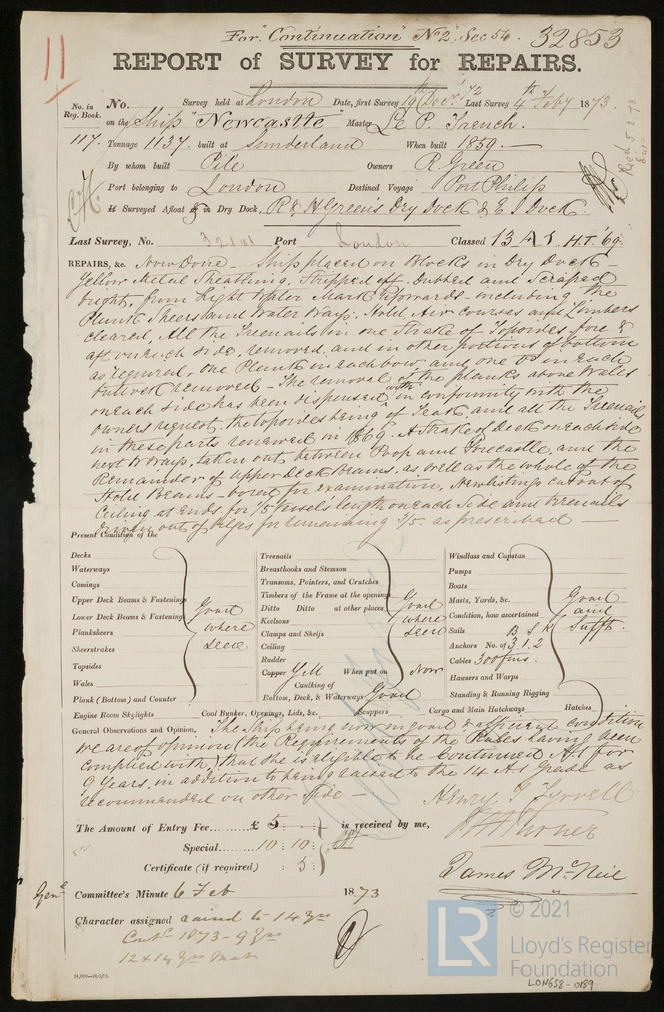 For "Continuation" No 2. Sec 54. 32853
11
REPORT of SURVEY for REPAIRS.
No. in Reg. Book. No. Survey held at London Date, first Survey 19th Decr '72 Last Survey 4th Feby 1873.
on the Ship "Newcastle" Master Le P. Trench.
117. Tonnage 1137. built at Sunderland When built 1859.
By whom built Pile Owners R. Green
Port belonging to London Destined Voyage Port Philip
if Surveyed Afloat or in Dry Dock, R & H Green's Dry Dock & E I Dock.
Last Survey, No. 32181 Port London Classed 13 A1. H.T. '69.
REPAIRS, &c. Now Done - Ship placed on Blocks in Dry Dock
Yellow Metal Sheathing, Stripped off, dubbed and Scraped
bright, from Light Water Mark Upwards - including the
Plank Sheers and Water Ways: Hold Air Courses and Limbers
cleared, All the Treenails in one Strake of Topsides fore &
aft on each side, removed, and in other portions of bottom
as required, one Plank in each bow, and one in each
buttock removed - The removal of the planks above Wales
on each side has been dispensed with in conformity with the
owners request, the topsides being of Teak, and all the Treenails
in these parts renewed in 1869. A Strake of deck on each side
next W Ways, taken out between Poop and Forecastle, and the
Remainder of Upper Deck Beams, as well as the whole of the
Hold Beams - bored for examination, New listings cut out of
Ceiling at Ends, for 1/5 Vessel's length on each Side and Treenails
driven out of for remaining 3/5. as prescribed
Present Condition of the
Decks
Waterways
Comings
Upper Deck Beams & Fastenings
Lower Deck Beams & Fastenings
Planksheers
Sheerstrakes
Topsides
Wales
Plank (Bottom) and Counter
Good where seen
Engine Room Skylights
Treenails
Breasthooks and Stemson
Transoms, Pointers, and Crutches
Timbers of the Frame at the openings
Ditto Ditto at other places
Keelsons
Clamps and Shelfs
Ceiling
Rudder
Copper Y M When put on Now
Caulking of
Bottom, Deck, & Waterways Good
Good where seen
Cool Bunker, Openings, Lids, &c. Scuppers
Windlass and Capstan
Pumps
Boats
Masts, Yards, &c.
Condition, how ascertained
Sails
Anchors No. of B 3 S 1 K 2
Cables 300 fms.
Hawsers and Warps
Standing & Running Rigging
Good and Sufft.
Cargo and Main Hatchways Hatches
General Observations and Opinion, The Ship being now in good & efficient condition
we are of opinion (the Requirements of the Rules having been
complied with,) that she is eligible to be Continued A1 for
9 Years, in addition to being raised to the 14 A1 Grade as
recommended on other side -
Henry J Tyrrell
Turner
James McNeil
The Amount of Entry Fee......... £ 5 : - : is received by me,
Special......... 10 : 10 :
Certificate (if required) : 5 :
Committee's Minute 6 Feb 1873
Character assigned raised to 14 yrs
Contd 1873 - 9 yrs
© 2021
LR
Lloyd's Register
Foundation
LON658-0189